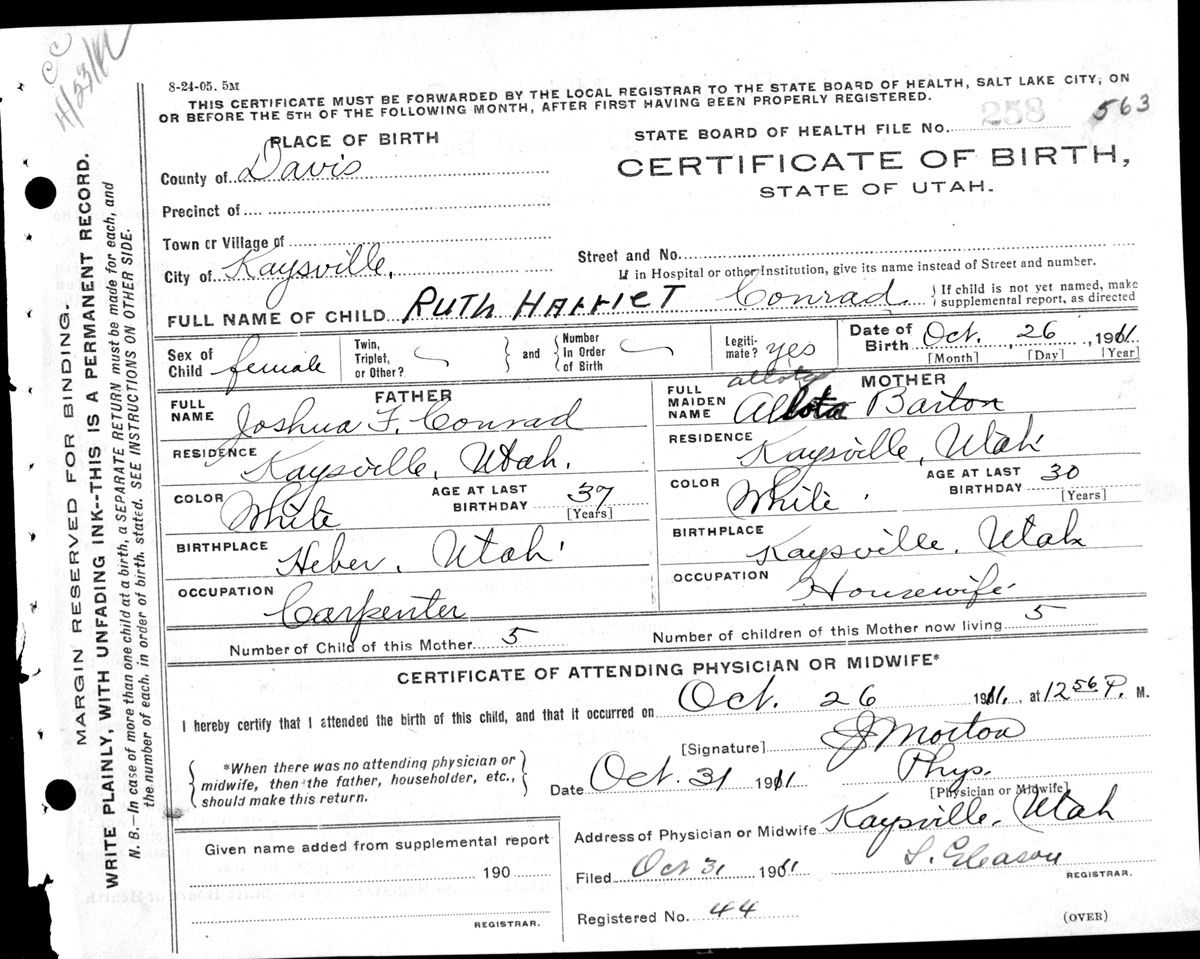 CC
4/23/42
8-24-05. 5M
THIS CERTIFICATE MUST BE FORWARDED BY THE LOCAL REGISTRAR TO THE STATE BOARD OF HEALTH, SALT LAKE CITY, ON
OR BEFORE THE 5TH OF THE FOLLOWING MONTH, AFTER FIRST HAVING BEEN PROPERLY REGISTERED.
PLACE OF BIRTH
STATE BOARD OF HEALTH FILE No. 258 563
County of Davis
CERTIFICATE OF BIRTH,
STATE OF UTAH.
Precinct of
Town or Village of
Street and No.
City of Kaysville,
If in Hospital or other Institution, give its name instead of Street and number.
FULL NAME OF CHILD RUTH HARRIET Conrad. } If child is not yet named, make supplemental report, as directed
Sex of Child female
Twin, Triplet, or Other?
and { Number In Order of Birth
Legitimate? yes
Date of Birth Oct. 26, 1911.
[Month] [Day] [Year]
FATHER
FULL NAME Joshua F. Conrad
RESIDENCE Kaysville, Utah.
COLOR White
AGE AT LAST BIRTHDAY 37 [Years]
BIRTHPLACE Heber, Utah
OCCUPATION Carpenter
MOTHER
FULL MAIDEN NAME Barton
RESIDENCE Kaysville, Utah
COLOR White
AGE AT LAST BIRTHDAY 30 [Years]
BIRTHPLACE Kaysville, Utah
OCCUPATION Housewife
Number of Child of this Mother 5
Number of children of this Mother now living 5
CERTIFICATE OF ATTENDING PHYSICIAN OR MIDWIFE*
I hereby certify that I attended the birth of this child, and that it occurred on Oct. 26 1911, at 12 56 P. M.
[Signature] J Morton
*When there was no attending physician or
midwife, then the father, householder, etc.,
should make this return.
Date Oct. 31 1911 Phys.
[Physician or Midwife]
Address of Physician or Midwife Kaysville, Utah
Given name added from supplemental report
190
REGISTRAR.
Filed Oct 31 1911 L. Gleason
REGISTRAR.
Registered No. 44
(OVER)
MARGIN RESERVED FOR BINDING.
WRITE PLAINLY, WITH UNFADING INK--THIS IS A PERMANENT RECORD.
N. B.—In case of more than one child at a birth, a SEPARATE RETURN must be made for each, and
the number of each, in order of birth, stated. SEE INSTRUCTIONS ON OTHER SIDE.